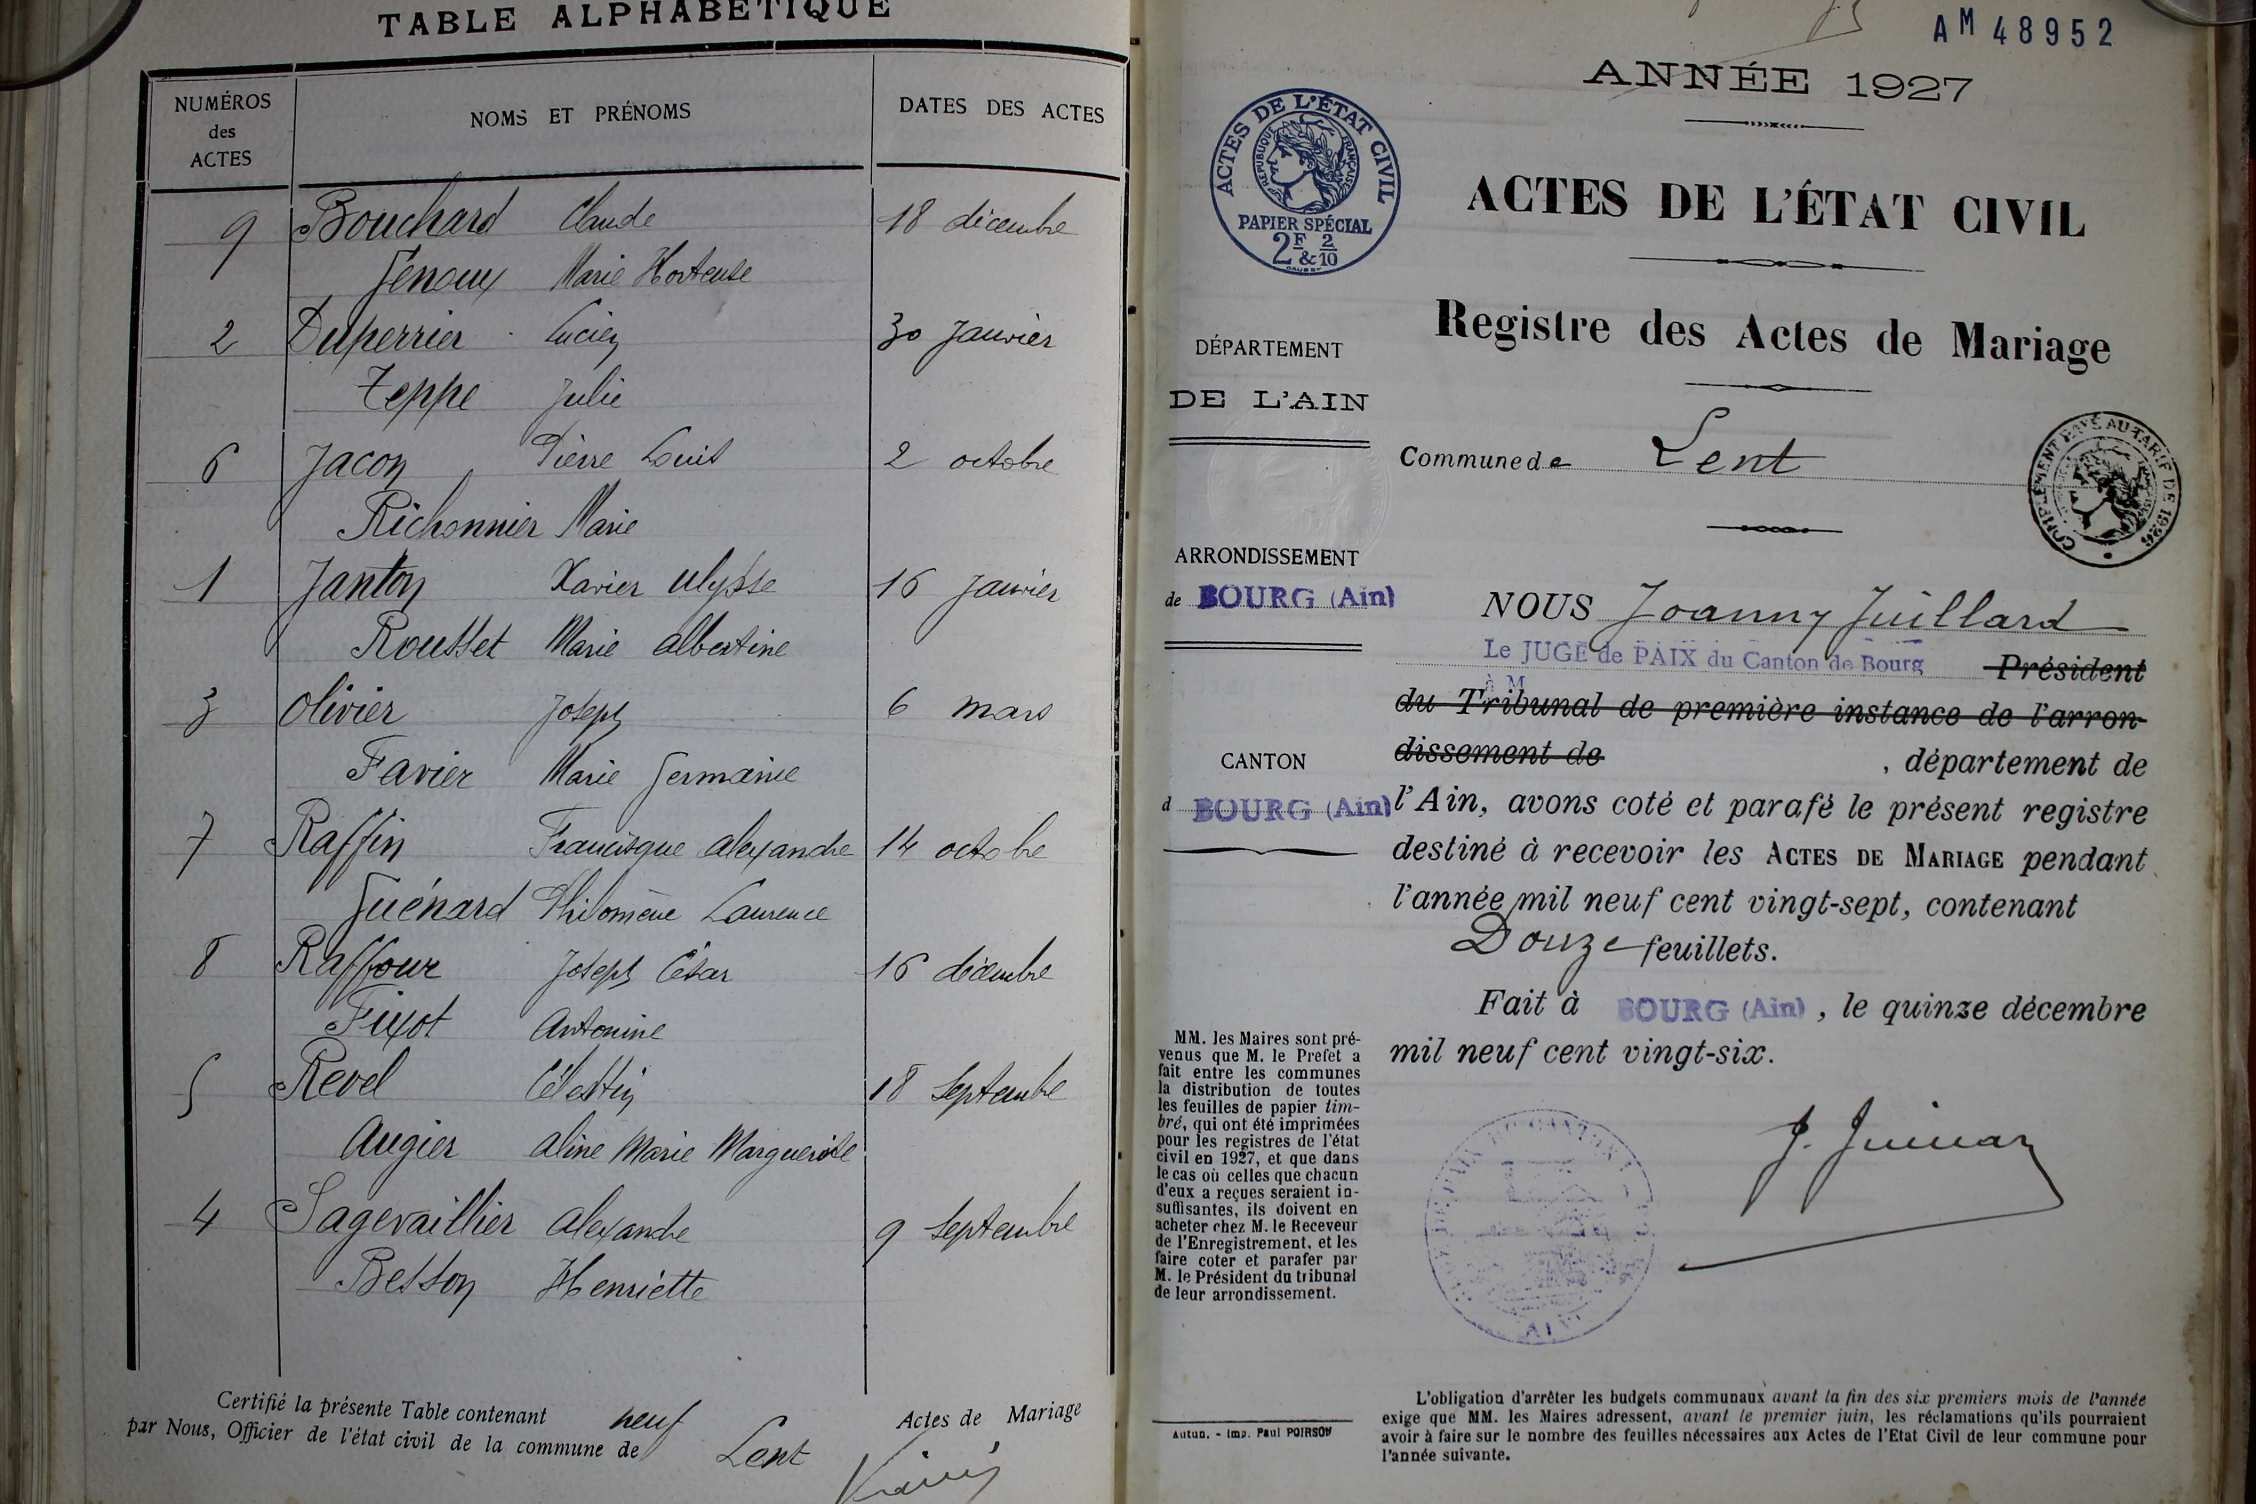 TABLE ALPHABÉTIQUE
NUMÉROS
des
ACTES
NOMS ET PRÉNOMS
DATES DES ACTES
9 Bouchard Claude 18 décembre
Genoux Marie Hortense
2 Duperrier Lucien 30 Janvier
Teppe Julie
6 Jacon Pierre Louis 2 octobre
Richonnier Marie
1 Janton Xavier Ulysse 16 Janvier
Rousset Marie Albertine
3 Olivier Joseph 6 mars
Favier Marie Germaine
7 Raffin Francisque Alexandre 14 octobre
Guénard Philomène Laurence
8 Raffour Joseph César 16 décembre
Fixot Antonine
5 Revel Célestin 18 Septembre
Augier Aline Marie Marguerite
4 Sagevaillier Alexandre 9 Septembre
Besson Henriette
Certifié la présente Table contenant neuf Actes de Mariage
par Nous, Officier de l'état civil de la commune de Lent
AM 48952
ANNÉE 1927
ACTES DE L'ÉTAT CIVIL
RÉPUBLIQUE FRANÇAISE
PAPIER SPÉCIAL
2F & 2/10
ACTES DE L'ÉTAT CIVIL
Registre des Actes de Mariage
DÉPARTEMENT
DE L'AIN
Commune de Lent
COMPLÉMENT PAYÉ AU TARIF DE 1926
ARRONDISSEMENT
de BOURG (Ain)
CANTON
d BOURG (Ain)
NOUS Joanny Juillard
Le JUGE de PAIX du Canton de Bourg Président
à M
du Tribunal de première instance de l'arron-
dissement de , département de
l'Ain, avons coté et parafé le présent registre
destiné à recevoir les ACTES DE MARIAGE pendant
l'année mil neuf cent vingt-sept, contenant
Douze feuillets.
Fait à BOURG (Ain), le quinze décembre
mil neuf cent vingt-six.
MM. les Maires sont pré-
venus que M. le Prefet a
fait entre les communes
la distribution de toutes
les feuilles de papier tim-
bré, qui ont été imprimées
pour les registres de l'état
civil en 1927, et que dans
le cas où celles que chacun
d'eux a reçues seraient in-
suffisantes, ils doivent en
acheter chez M. le Receveur
de l'Enregistrement, et les
faire coter et parafer par
M. le Président du tribunal
de leur arrondissement.
Autun. - Imp. Paul POIRSON
L'obligation d'arrêter les budgets communaux avant la fin des six premiers mois de l'année
exige que MM. les Maires adressent, avant le premier juin, les réclamations qu'ils pourraient
avoir à faire sur le nombre des feuilles nécessaires aux Actes de l'Etat Civil de leur commune pour
l'année suivante.